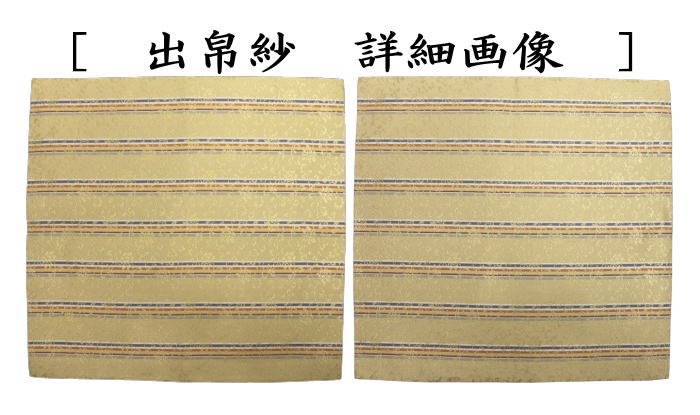 [ 出帛紗 詳細画像 ]